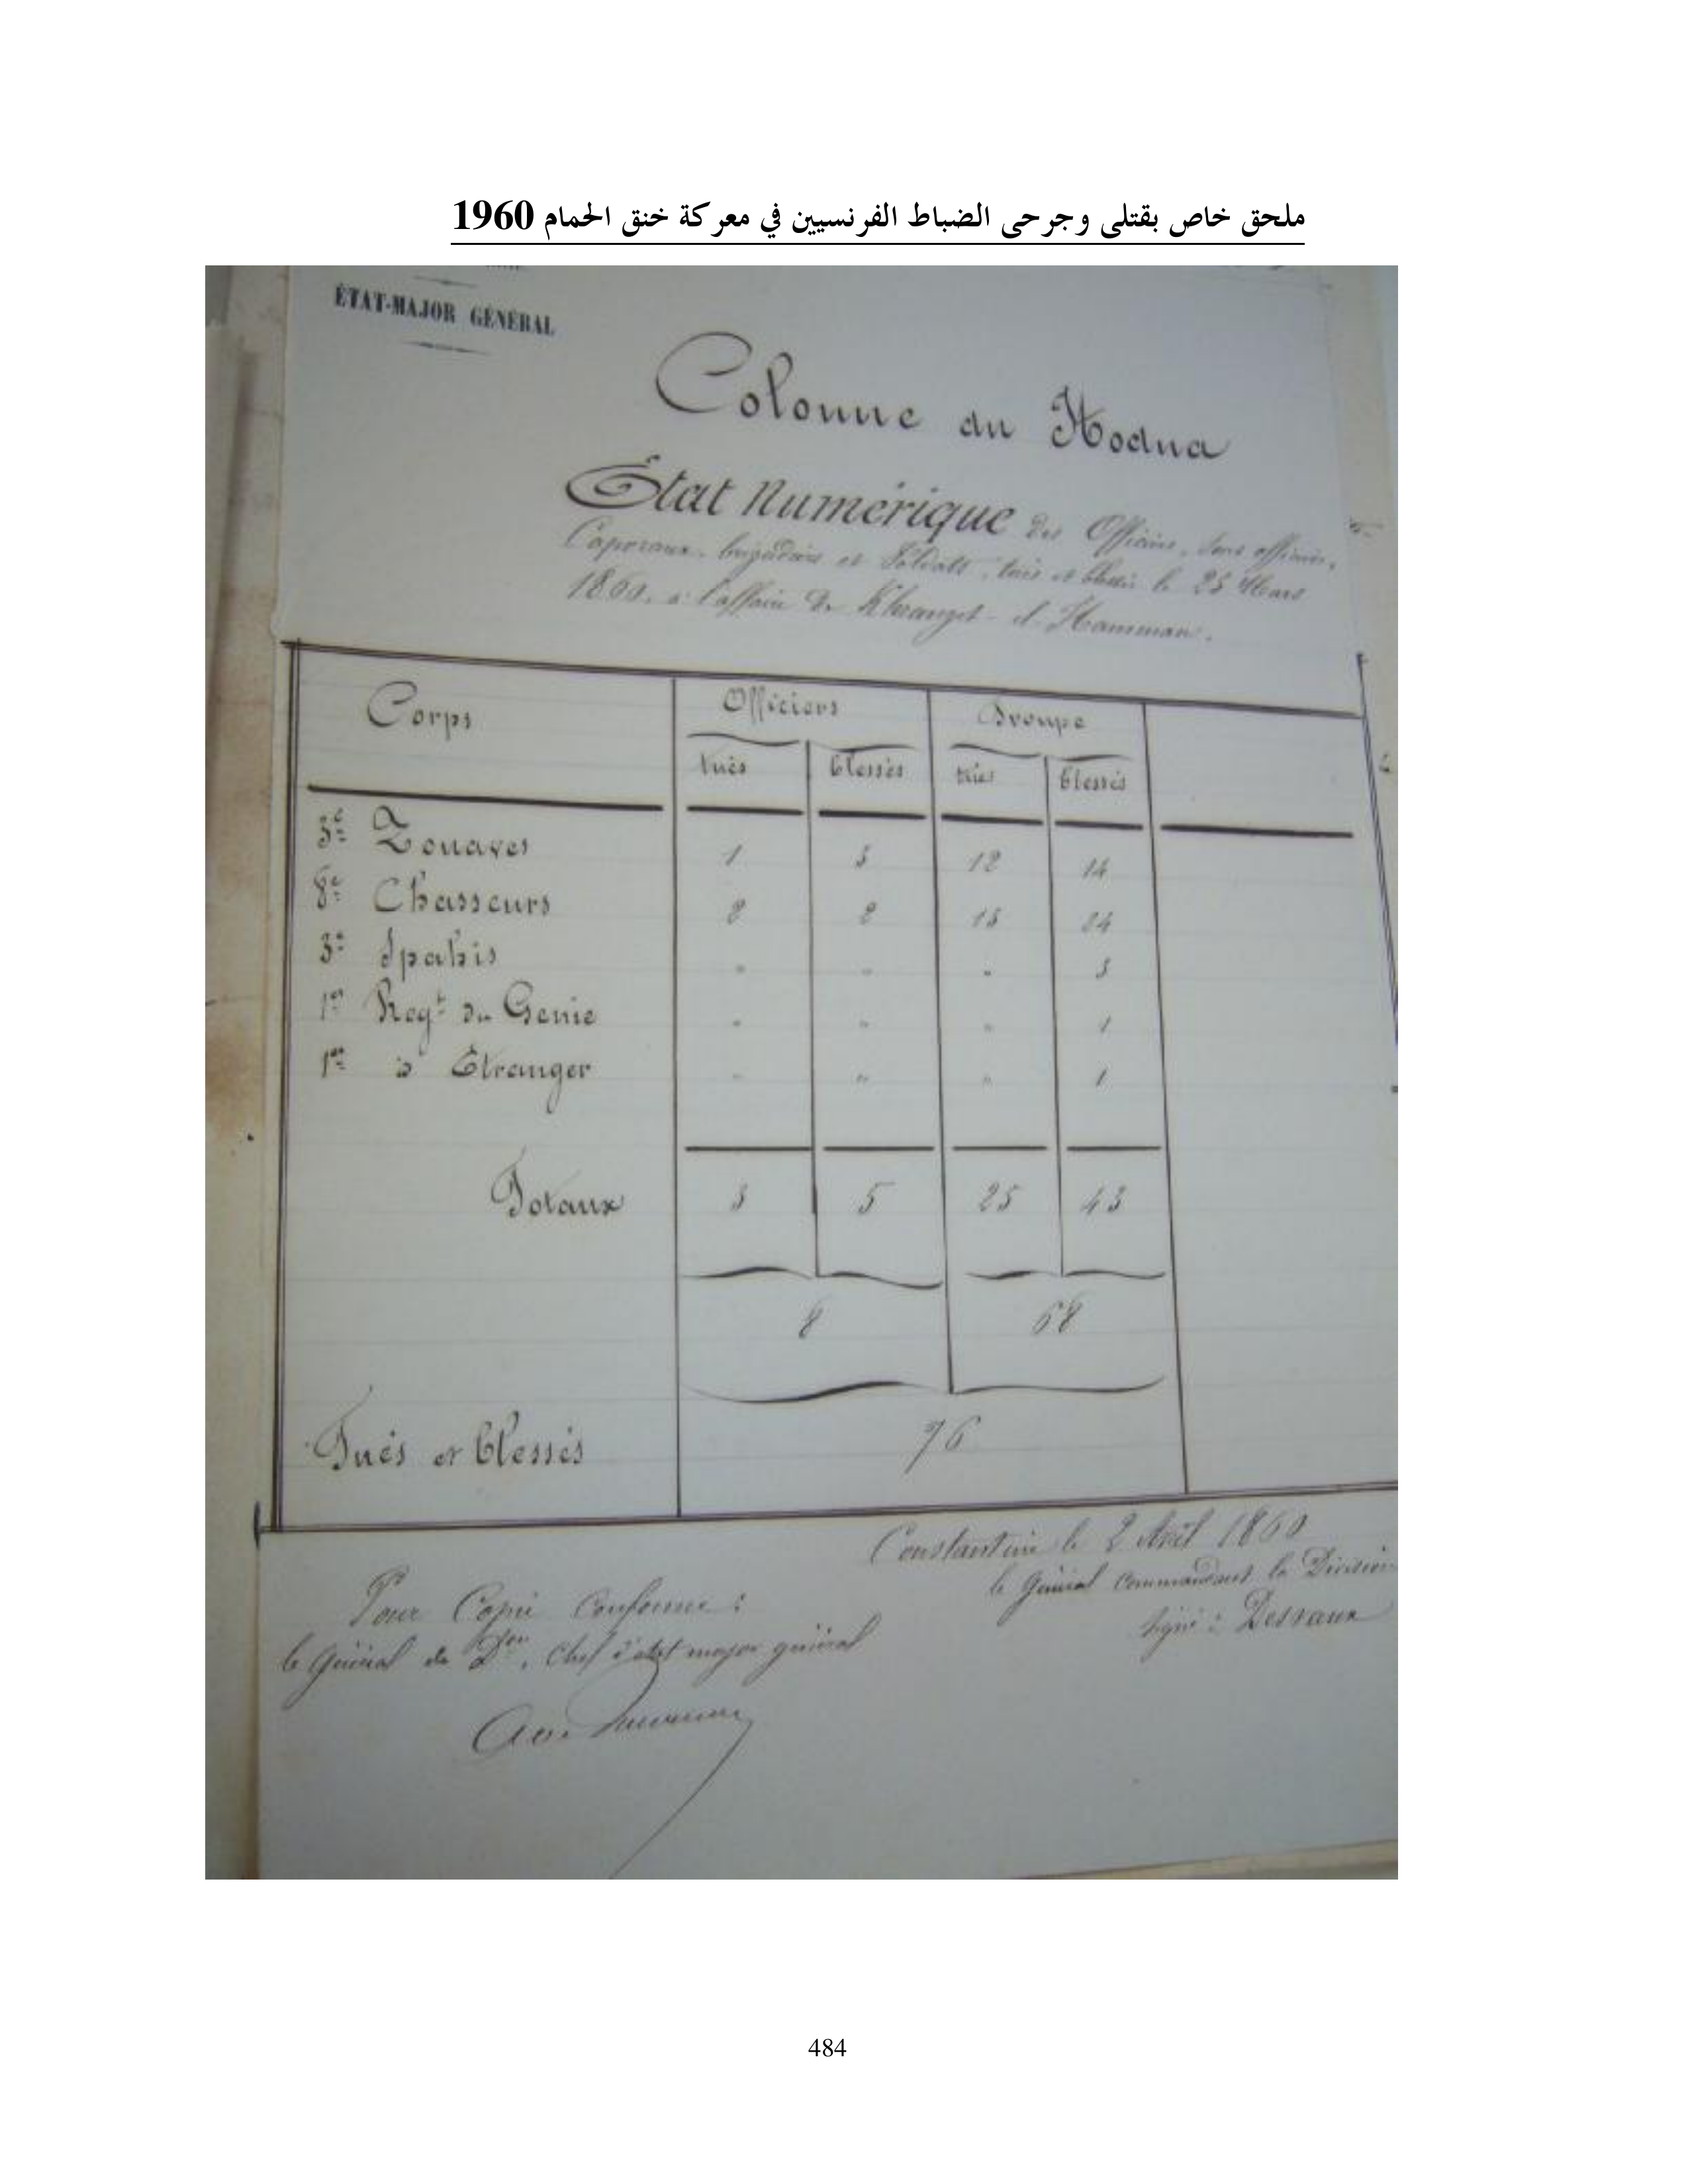 ملحق خاص بقتلى وجرحى الضباط الفرنسيين في معركة خنق الحمام 1960
ÉTAT-MAJOR GÉNÉRAL
Colonne du Hodna
État Numérique des Officiers, Sous officiers,
Caporaux, brigadiers et Soldats, tués et blessés le 25 Mars
1860, à l'affaire de Khranget-el-Hamman.
Corps Officiers Troupe
tués blessés tués blessés
3e Zouaves 1 3 12 14
8e Chasseurs 2 2 13 24
3e Spahis " " " 3
1er Regt du Genie " " " 1
1er d° Étranger " " " 1
Totaux 3 5 25 43
8 68
Tués et blessés 76
Constantine le 2 Avril 1860
le Général Commandant la Division
signé : Desvaux
Pour Copie Conforme :
le Général de Don, Chef d'état major général
484